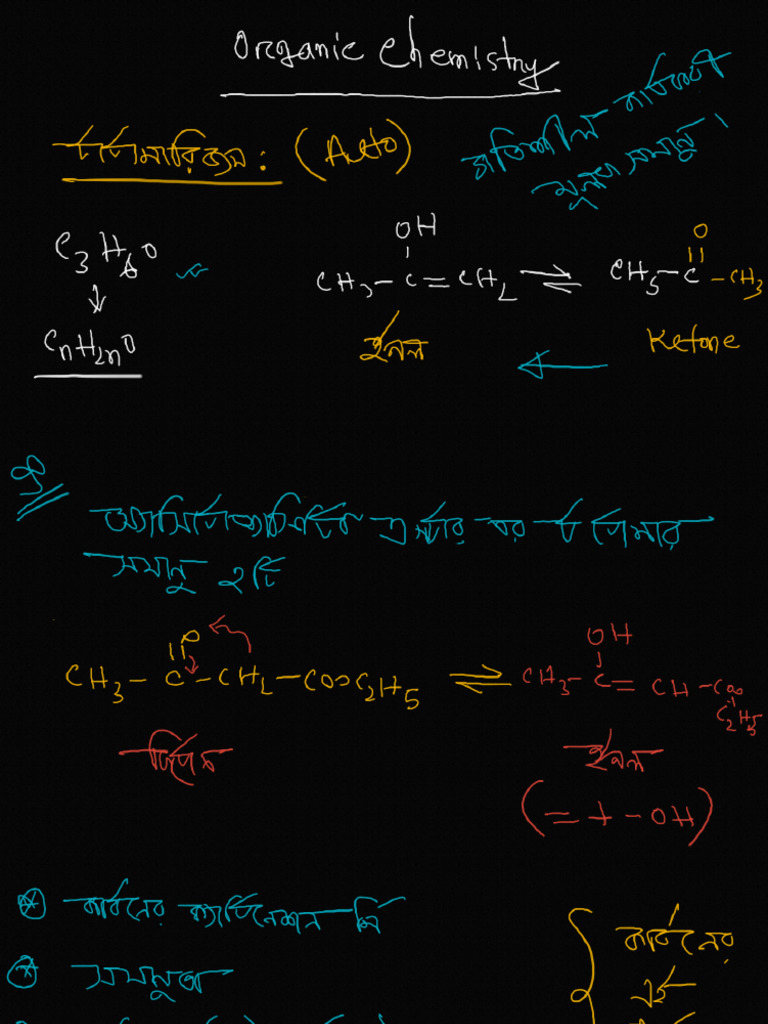 Organic Chemistry
টটোমারিজম : (Auto)
গতিশীল কার্যকরী
মূলক সমাণু।
C3H6O
CnH2nO
OH
CH3-C=CH2 ⇌ CH3-C-CH3
O
ইনল
Ketone
অ্যাসিটোএসিটিক এস্টার এর টটোমার
সমাণু ২টি
O
CH3-C-CH2-COOC2H5 ⇌ CH3-C=CH-COO
C2H5
OH
কিটো
ইনল
(= + -OH)
কার্বনের ক্যাটিনেশন কি
সমাণুতা
কার্বনের
এই